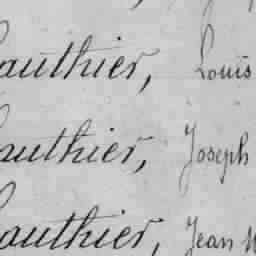 Gauthier, Louis
Gauthier, Joseph
Gauthier, Jean